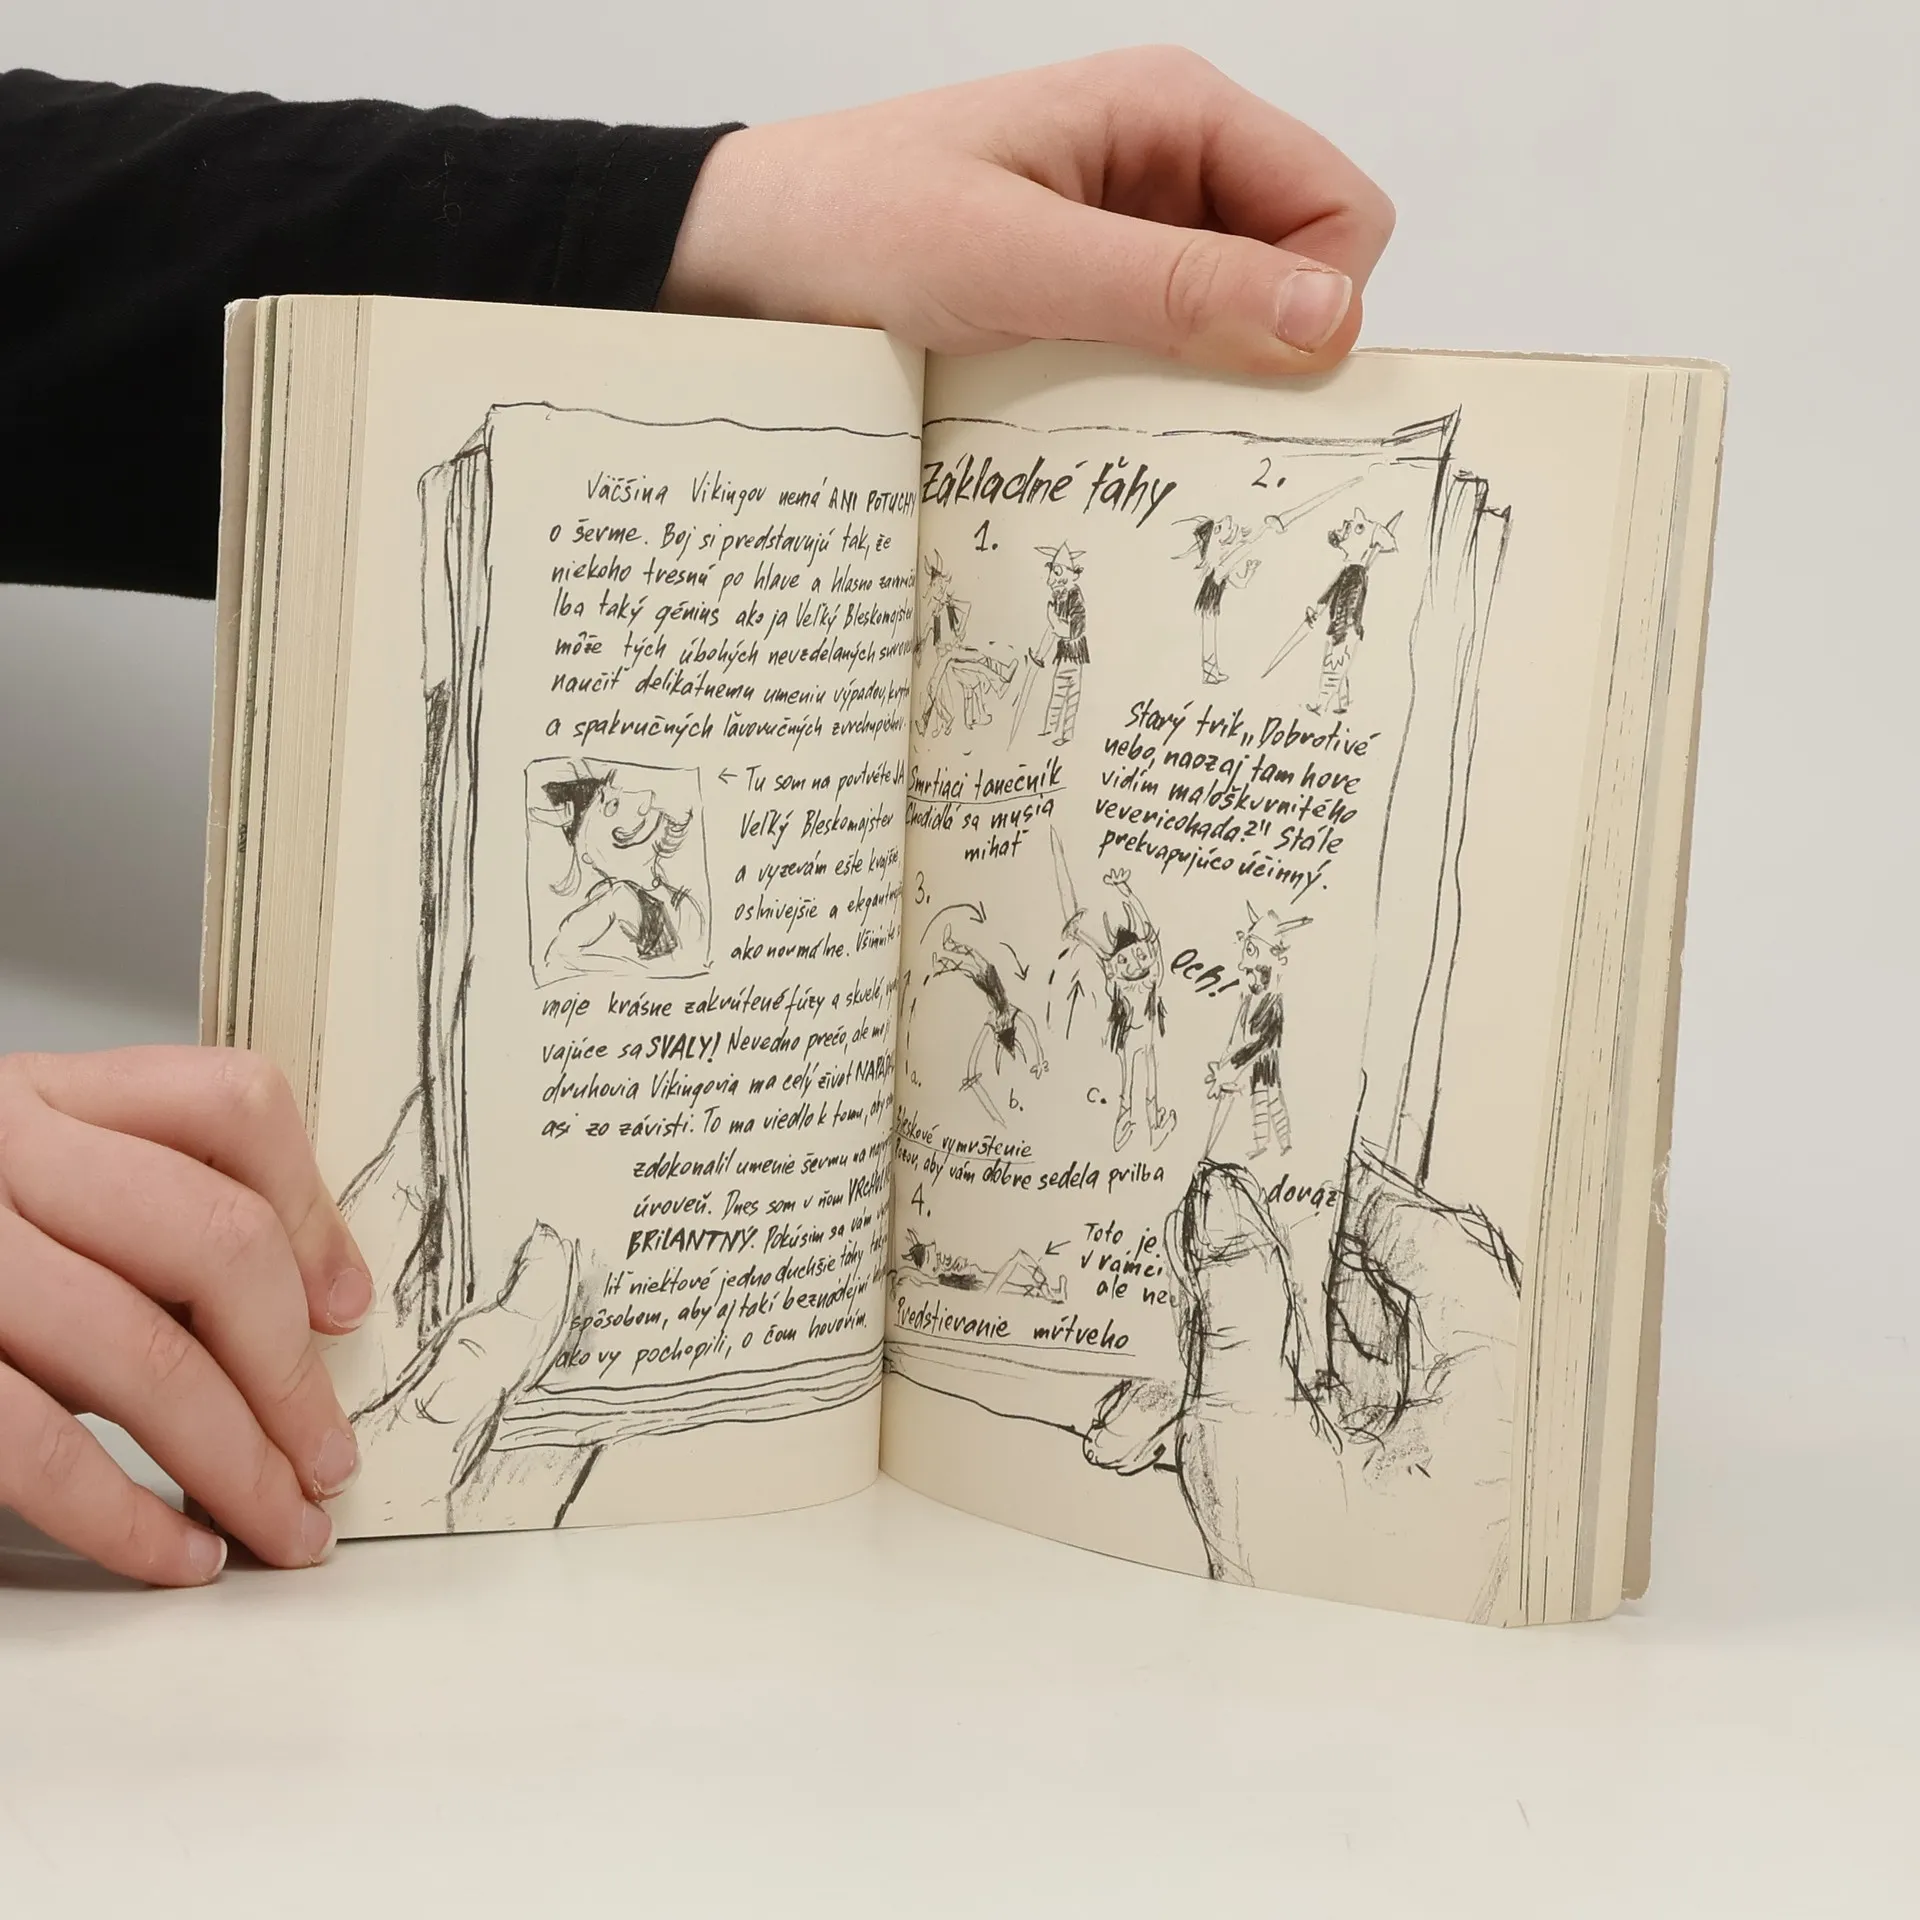 Väčšina Vikingov nemá ANI POTUCHY
o šerme. Boj si predstavujú tak, že
niekoho tresnú po hlave a hlasno
Iba taký génius ako ja Veľký Bleskomajster
môže tých úbohých nevzdelaných
naučiť delikátnemu umeniu výpadov,
a spakručných ľavoručných
← Tu som na portréte JA
Veľký Bleskomajster
a vyzerám ešte krajšie,
oslnivejšie a
ako normálne. Všimnite si
moje krásne zakrútené fúzy a skvelé,
vajúce sa SVALY! Nevedno prečo, ale moji
druhovia Vikingovia ma celý život
asi zo závisti. To ma viedlo k tomu, aby som
zdokonalil umenie šermu na
úroveň. Dnes som v ňom
BRILANTNÝ. Pokúsim sa vám
liť niektoré jednoduchšie ťahy
spôsobom, aby aj takí beznádejní
ako vy pochopili, o čom hovorím.
Základné ťahy
1.
Smrtiaci tanečník
Chodidlá sa musia
mihať
2.
Starý trik „Dobrotivé
nebo, naozaj tam hore
vidím maloškvrnitého
vevericohada?" Stále
prekvapujúco účinný.
3.
a.
b.
c.
Och!
Bleskové vymrštenie
Pozor, aby vám dobre sedela prilba
4.
← Toto je
v rámci
ale nee
doraz
Predstieranie mŕtveho